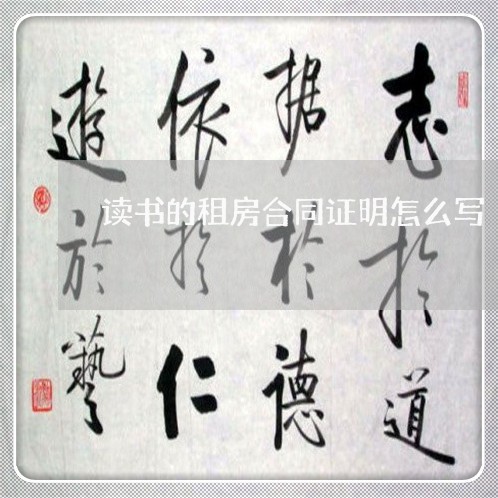 志於道
据於德
依於仁
遊於藝
读书的租房合同证明怎么写